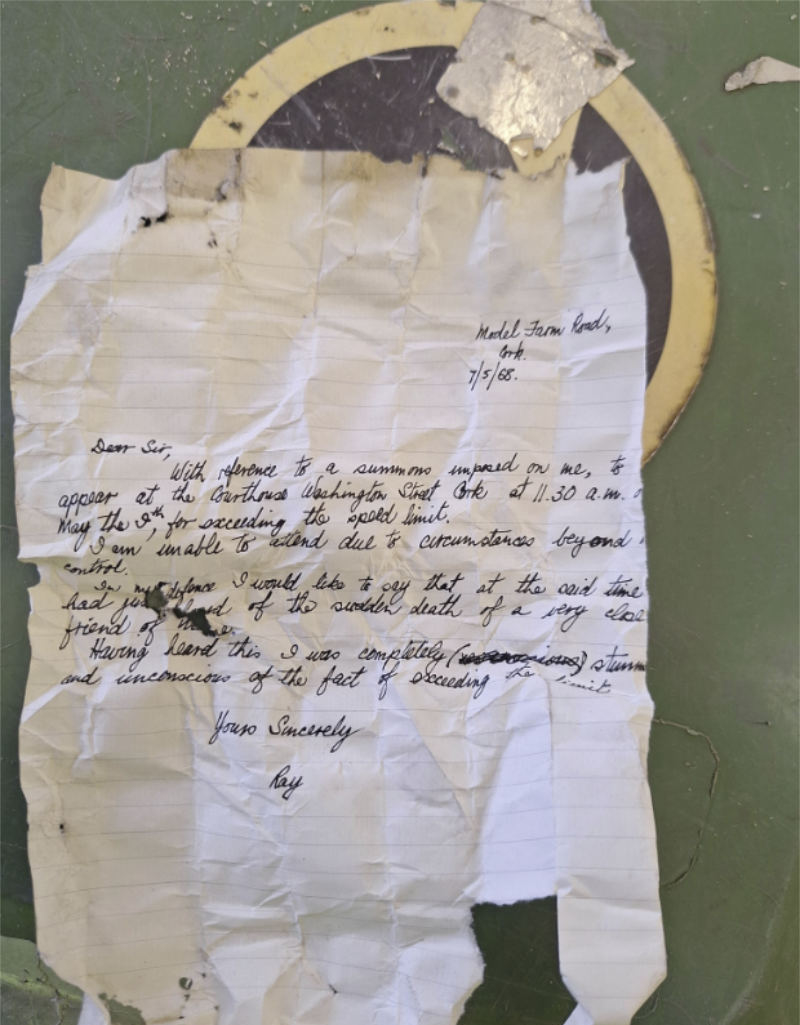 Model Farm Road,
Cork.
7/5/68.
Dear Sir,
With reference to a summons imposed on me, to
appear at the Courthouse Washington Street Cork at 11.30 a.m.
May the 9th, for exceeding the speed limit.
I am unable to attend due to circumstances beyond
control.
In my defence I would like to say that at the said time
had of the sudden death of a very close
friend of
Having heard this I was completely ( ) stunn
and unconscious of the fact of exceeding the limit
Yours Sincerely
Ray